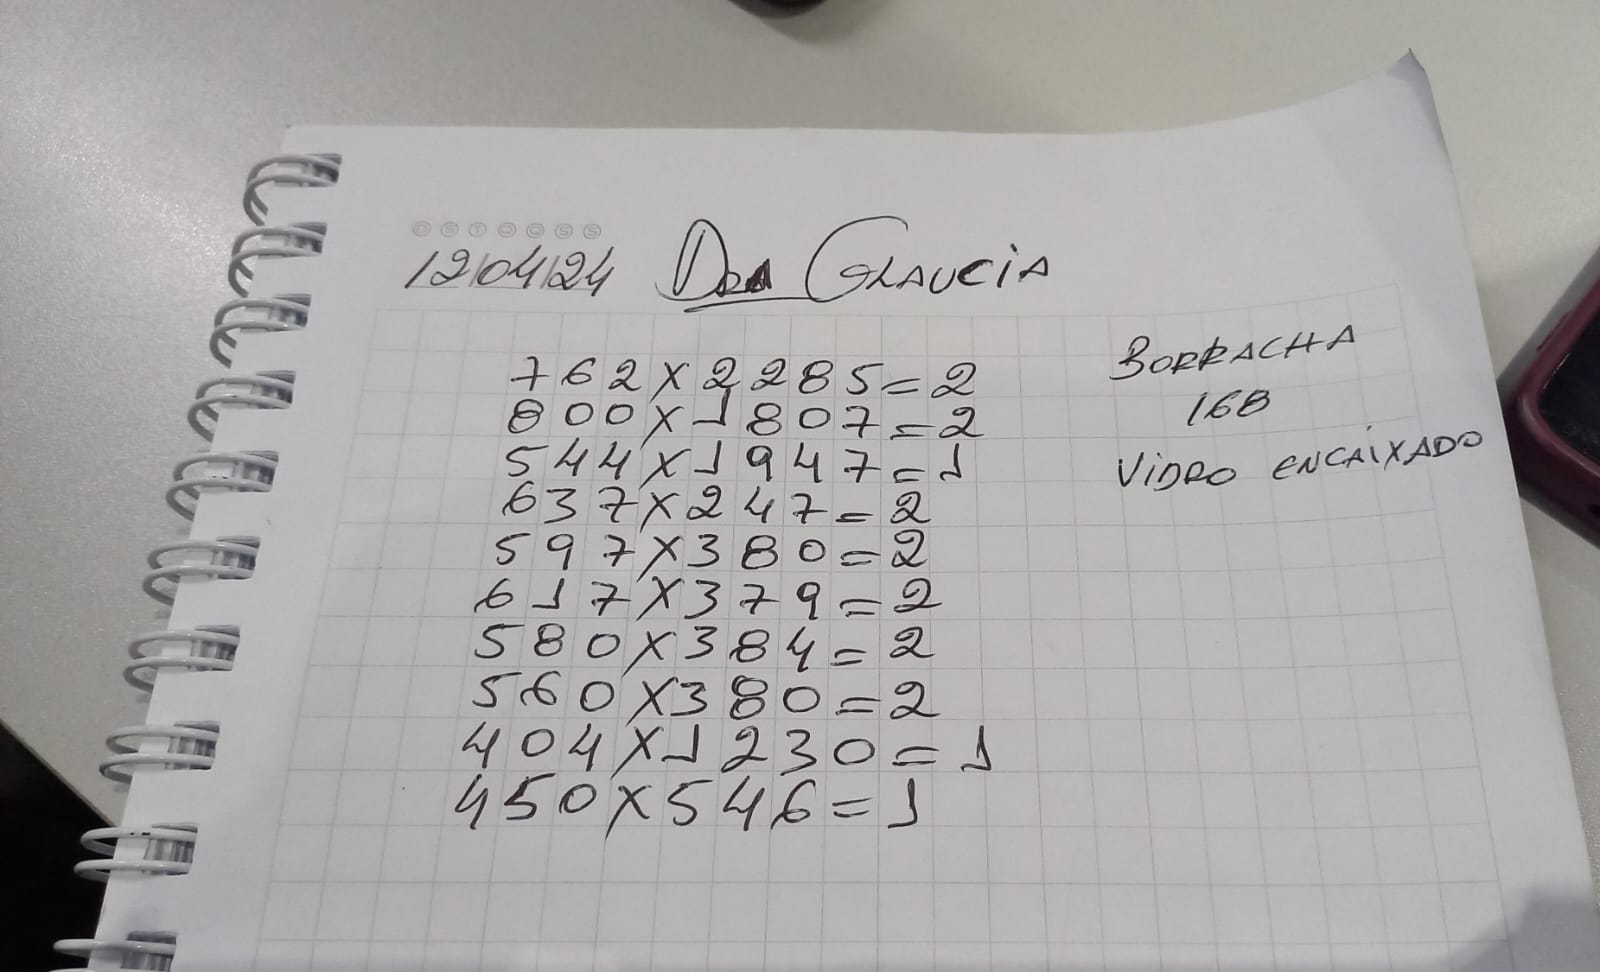 D S T Q Q S S
12/04/24 Dra Glaucia
762x2285=2
800x1807=2
544x1947=1
637x247=2
597x380=2
617x379=2
580x384=2
560x380=2
404x1230=1
450x546=1
BORRACHA
168
VIDRO ENCAIXADO